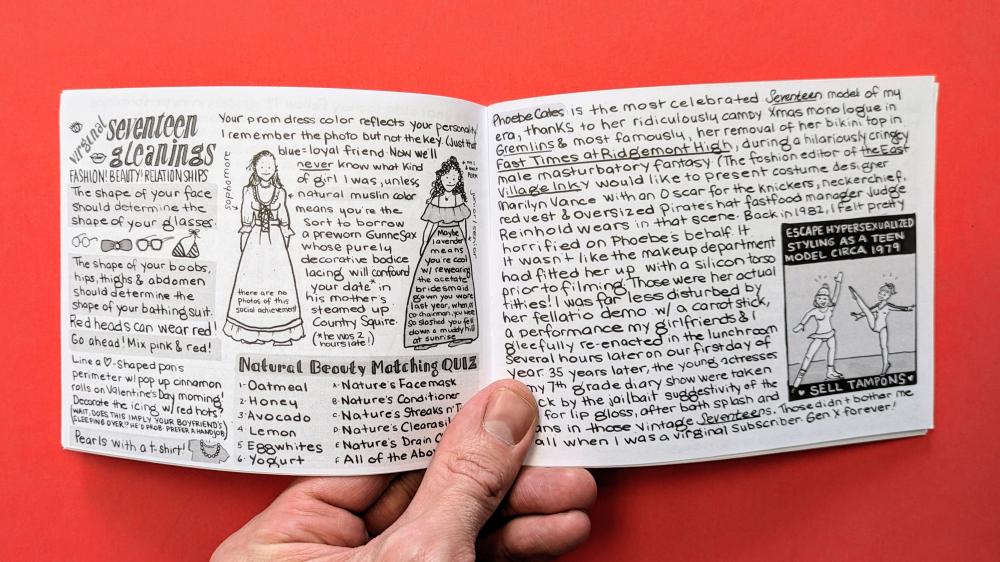 virginal seventeen
gleanings
FASHION! BEAUTY! RELATIONSHIPS
The shape of your face
should determine the
shape of your glasses.
The shape of your boobs,
hips, thighs & abdomen
should determine the
shape of your bathing suit.
Red heads can wear red!
Go ahead! Mix pink & red!
Line a ♡-shaped pans
perimeter w/ pop up cinnamon
rolls on Valentine's Day morning!
Decorate the icing w/ red hots?
(WAIT, DOES THIS IMPLY YOUR BOYFRIEND'S
SLEEPING OVER? HE'D PROB. PREFER A HANDJOB)
Pearls with a t-shirt!
Your prom dress color reflects your personality
I remember the photo but not the key. (Just that
blue=loyal friend. Now we'll
never know what kind
of girl I was, unless
natural muslin color
means you're the
sort to borrow
a preworn Gunne Sax
whose purely
decorative bodice
lacing will confound
your date* in
his mother's
steamed up
Country Squire.
(*he was 2
hours late!)
sophomore
there are no
photos of this
social achievement!
Maybe
lavender
means
you're cool
w/ rewearing
the acetate
bridesmaid
gown you wore
last year, when, as
co-chairman, you were
so sloshed you fell
down a muddy hill
at sunrise
Natural Beauty Matching QUIZ
1. Oatmeal
2. Honey
3. Avocado
4. Lemon
5. Egg whites
6. Yogurt
A. Nature's Facemask
B. Nature's Conditioner
C. Nature's Streaks n'
D. Nature's Clearasil
E. Nature's Drain
F. All of the
Phoebe Cates is the most celebrated Seventeen model of my
era, thanks to her ridiculously campy Xmas monologue in
Gremlins & most famously, her removal of her bikini top in
Fast Times at Ridgemont High, during a hilariously cringey
male masturbatory fantasy (The fashion editor of the East
Village Inky would like to present costume designer
Marilyn Vance with an Oscar for the knickers, neckerchief,
red vest & oversized pirates hat fastfood manager Judge
Reinhold wears in that scene. Back in 1982, I felt pretty
horrified on Phoebe's behalf. It
wasn't like the makeup department
had fitted her up with a silicon torso
prior to filming. Those were her actual
titties! I was far less disturbed by
her fellatio demo w/ a carrot stick,
a performance my girlfriends & I
gleefully re-enacted in the lunchroom
several hours later on our first day of
year. 35 years later, the young actresses
my 7th grade diary show were taken
by the jailbait suggestivity of the
for lip gloss, after bath splash and
in those vintage Seventeens. Those didn't bother me
all when I was a virginal subscriber. Gen X forever!
ESCAPE HYPERSEXUALIZED
STYLING AS A TEEN
MODEL CIRCA 1979
SELL TAMPONS